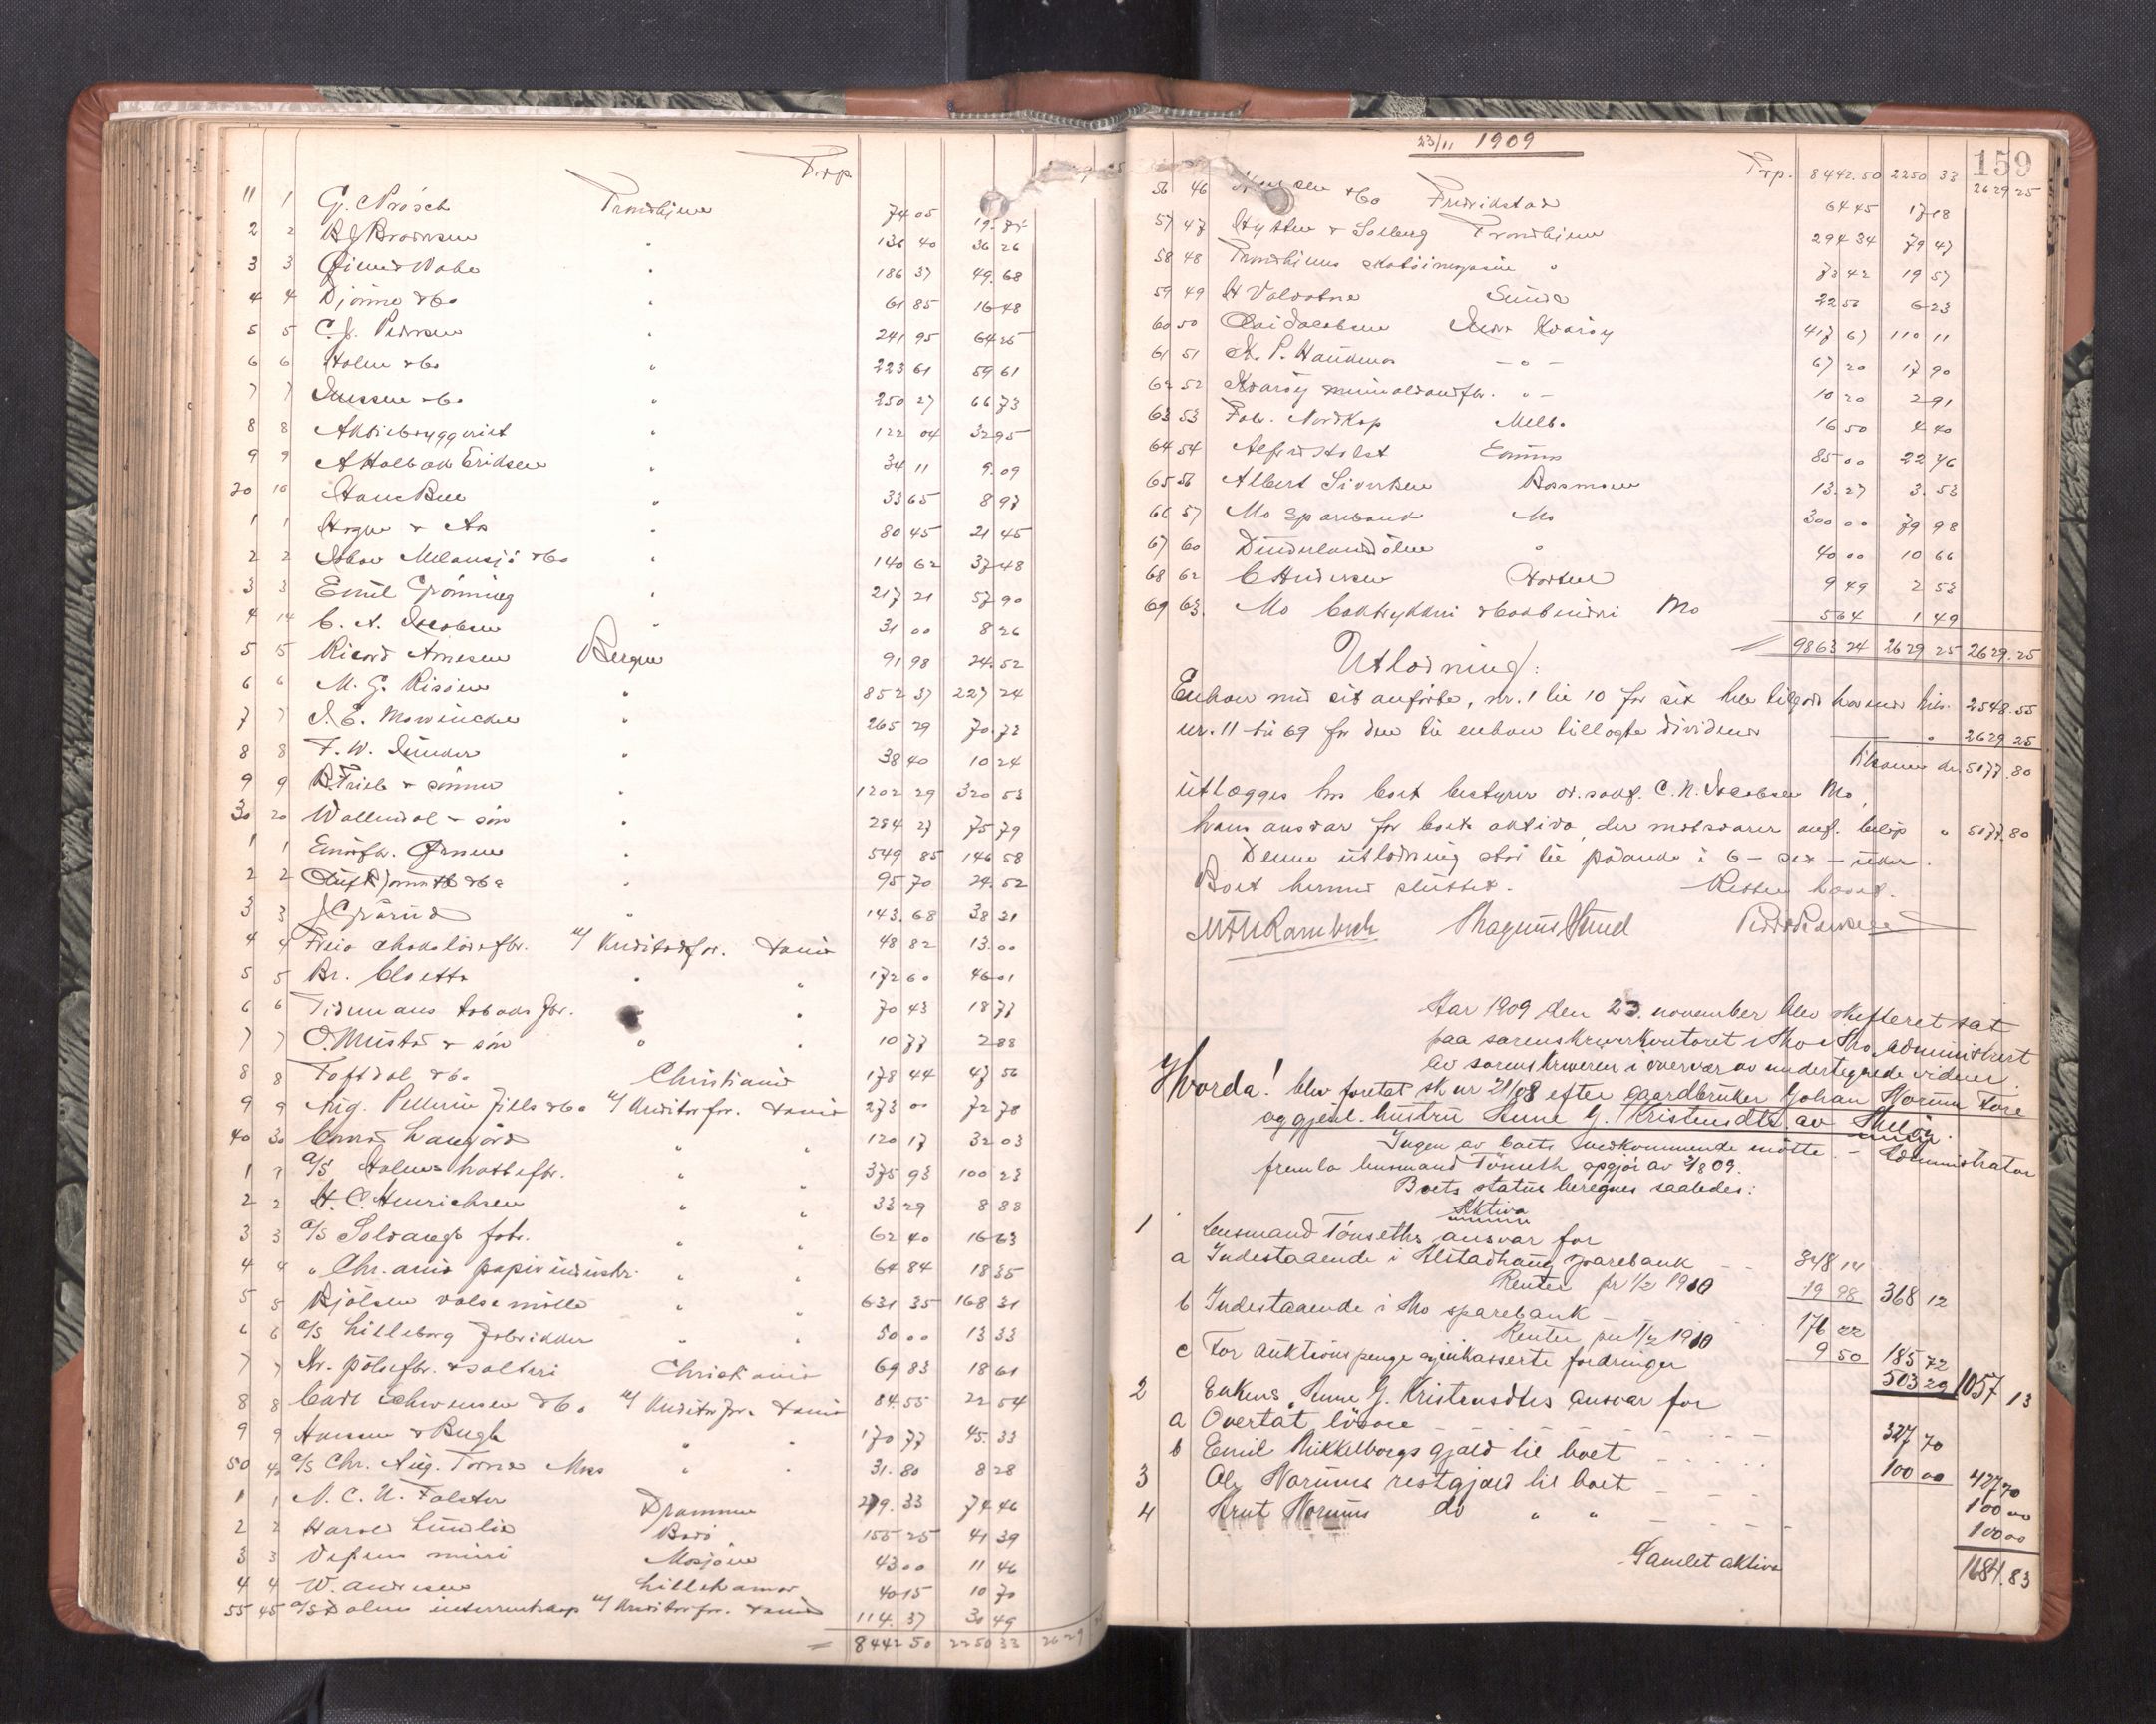 Trp.
11 1 G. Prösch Trondhjem 74 05 19.75
2 2 B J Brodersen " 136 40 36 26
3 3 " 186 37 49.68
4 4 Djönne & Co " 61 85 16 48
5 5 C. J. Pedersen " 241 95 64 25
6 6 Holm & Co " 223 61 59 61
7 7 Jenssen & Co " 250 27 66 73
8 8 Aktiebryggeriet " 122 04 32 95
9 9 A Holbæk Eriksen " 34 11 9.09
20 10 Hans Bue " 33 65 8 97
1 1 " 80 45 21 45
2 2 Johan Melansjö & Co " 140 62 37 48
3 3 Emil Grönning " 217 21 57 90
4 14 C. A. Jacobsen " 31 00 8 26
5 5 Ricard Arnesen Bergen 91 98 24.52
6 6 M. G. Risöen " 852 37 227 24
7 7 J. E. Mowinckel " 265 29 70.72
8 8 F. W. " 38 40 10 24
9 9 B. Friele & sönner " 1202 29 320 53
30 20 Wallendal & sön " 284 27 75 79
1 1 " 549 85 146 58
2 2 " 95 70 24.52
3 3 " 143.68 38 31
4 4 Freia chokoladefbr. v/ Kreditorfor. Xania 48 82 13.00
5 5 Br. Cloetta " " 172 60 46 01
6 6 Tidemans tobaksfbr. " " 70 43 18 77
7 7 O. Mustad & sön " " 10 77 2 88
8 8 Toftdal & Co Christiania 178 44 47 56
9 9 Aug. Pellerin fils & Co v/ Kreditorfor. Xania 273 00 72 78
40 30 Conrad Langaard " " 120 17 32 03
1 1 a/s Holmes hattefbr. " " 375 93 100 23
2 2 H. C. Henrichsen " " 33 29 8 88
3 3 a/s Solvangs fabr. " " 62 40 16 63
4 4 " Chr.ania papirindustri " " 64 84 18 35
5 5 Bjölsen valsemölle " " 631 35 168 31
6 6 a/s Lilleborg fabrikker " " 50 00 13 33
7 7 Kr. pölsefbr. & salteri Christiania 69 83 18 61
8 8 Carl Schwensen & Co. v/ Kreditorfor. Xania 84.55 22 54
9 9 Hansen & Bugh " " 170 77 45.33
50 40 a/s Chr. Aug. Torne Moss " " 31.80 8 28
1 1 N. C. U. Falster Drammen 279.33 74 46
2 2 Harald Lundlie Bodö 155 25 41 39
3 3 Vefsens meieri Mosjöen 43 00 11 46
4 4 W. Andresen Lillehamar 40 15 10 70
55 45 v/ Kreditorfor. Xania 114.37 30 49
= 8442 50 2250 33 2629
23/11 1909
159
Trp. 8442.50 2250 33 2629 25
56 46 & Co Fredrikstad 64 45 17 18
57 47 Hytter & Solberg Trondhjem 294 34 79 47
58 48 Trondhjems skotöimagasin " 73 42 19 57
59 49 H Valvatne Sunde 22 50 6 23
60 50 Olai Jacobsen Indre Kvaröy 417 67 110 11
61 51 A. P. Haugmo - " - 67 20 17 90
62 52 Kvaröy mineralvandfbr. " - 10 20 2 91
63 53 Fabr. Nordkap Melbo 16 50 4 40
64 54 Alfred Holst 85 00 22 46
65 56 Albert Siversen Rossmoen 13.27 3.53
66 57 Mo sparebank Mo 300 00 79 98
67 60 Dunderlandsölen " 40 00 10 66
68 62 C Andersen 9 49 2 53
69 63. Mo boktrykkeri & bokbinderi Mo 5 64 1 49
9863 24 2629 25 2629.25
Utlodning:
Enhver med sit anförte, nr. 1 til 10 for sit hele tilgodehavende kr. 2548.55
nr. 11 til 69 for den til enhver tillagte dividende " 2629 25
Tilsammen kr. 5177.80
utlægges hos boets bestyrer ov.sakf. C. N. Jacobsen Mo,
hvis ansvar for boets aktiva, der motsvarer anf. belöp " 5177.80
Denne utlodning står til påanke i 6 - sex - uker.
Boet hermed sluttet. Retten hævet.
Magnus Lund
Aar 1909 den 23. november blev skifteret sat
paa sorenskriverkontoret i Mo, administrert
av sorenskriveren i overvær av undertegnede vidner.
Hvorda! blev foretat sk nr 21/08 efter gaardbruker Johan Norum Fore
og gjenl. hustru Anne G. Kristensdtr. av
Ingen av boets vedkommende mötte. - Administrator
fremla lensmand Tönseth opgjör av 2/8 09.
Boets status beregnes saaledes:
Aktiva
1 Lensmand Tönseths ansvar for
a Indestaaende i Alstadhaug sparebank - - 348 14
Renter pr 1/2 1910 19 98 368 12
b Indestaaende i Mo sparebank - 176 22
Renter pr 1/2 1910 9 50 185 72
c For auktionspenge og inkasserte fordringer 503 29 1057 13
2 Enkens, Anne G. Kristensdtrs ansvar for
a Overtat lösöre - - - 327 70
b Emil Mikkelborgs gjæld til boet - - - 100 00 427 70
3 Ole Norums restgjæld til boet - - - 100 00
4 Knut Norums do " " - - - 100 00
Samlet aktiva 1684.83